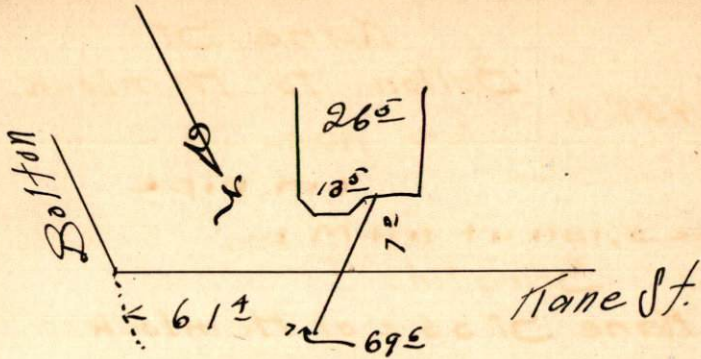 Bolton
26 5
13 5
7 2
61 4
69 6
Kane St.